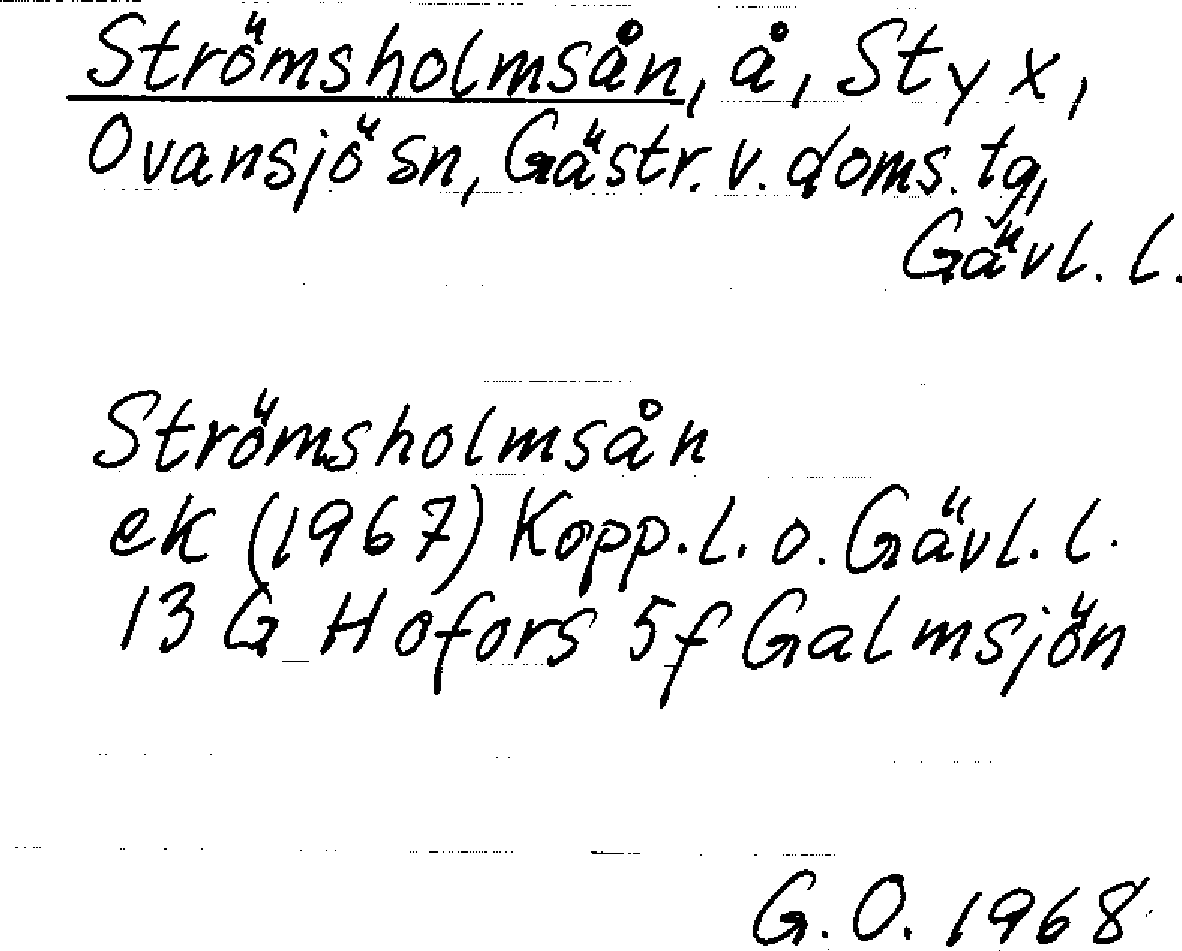 Strömsholmsån, å, Styx,
Ovansjö sn, Gästr. v. doms. tg,
Gävl. l.
Strömsholmsån
ek (1967) Kopp. l. o. Gävl. l.
13 G Hofors 5f Galmsjön
G. O. 1968